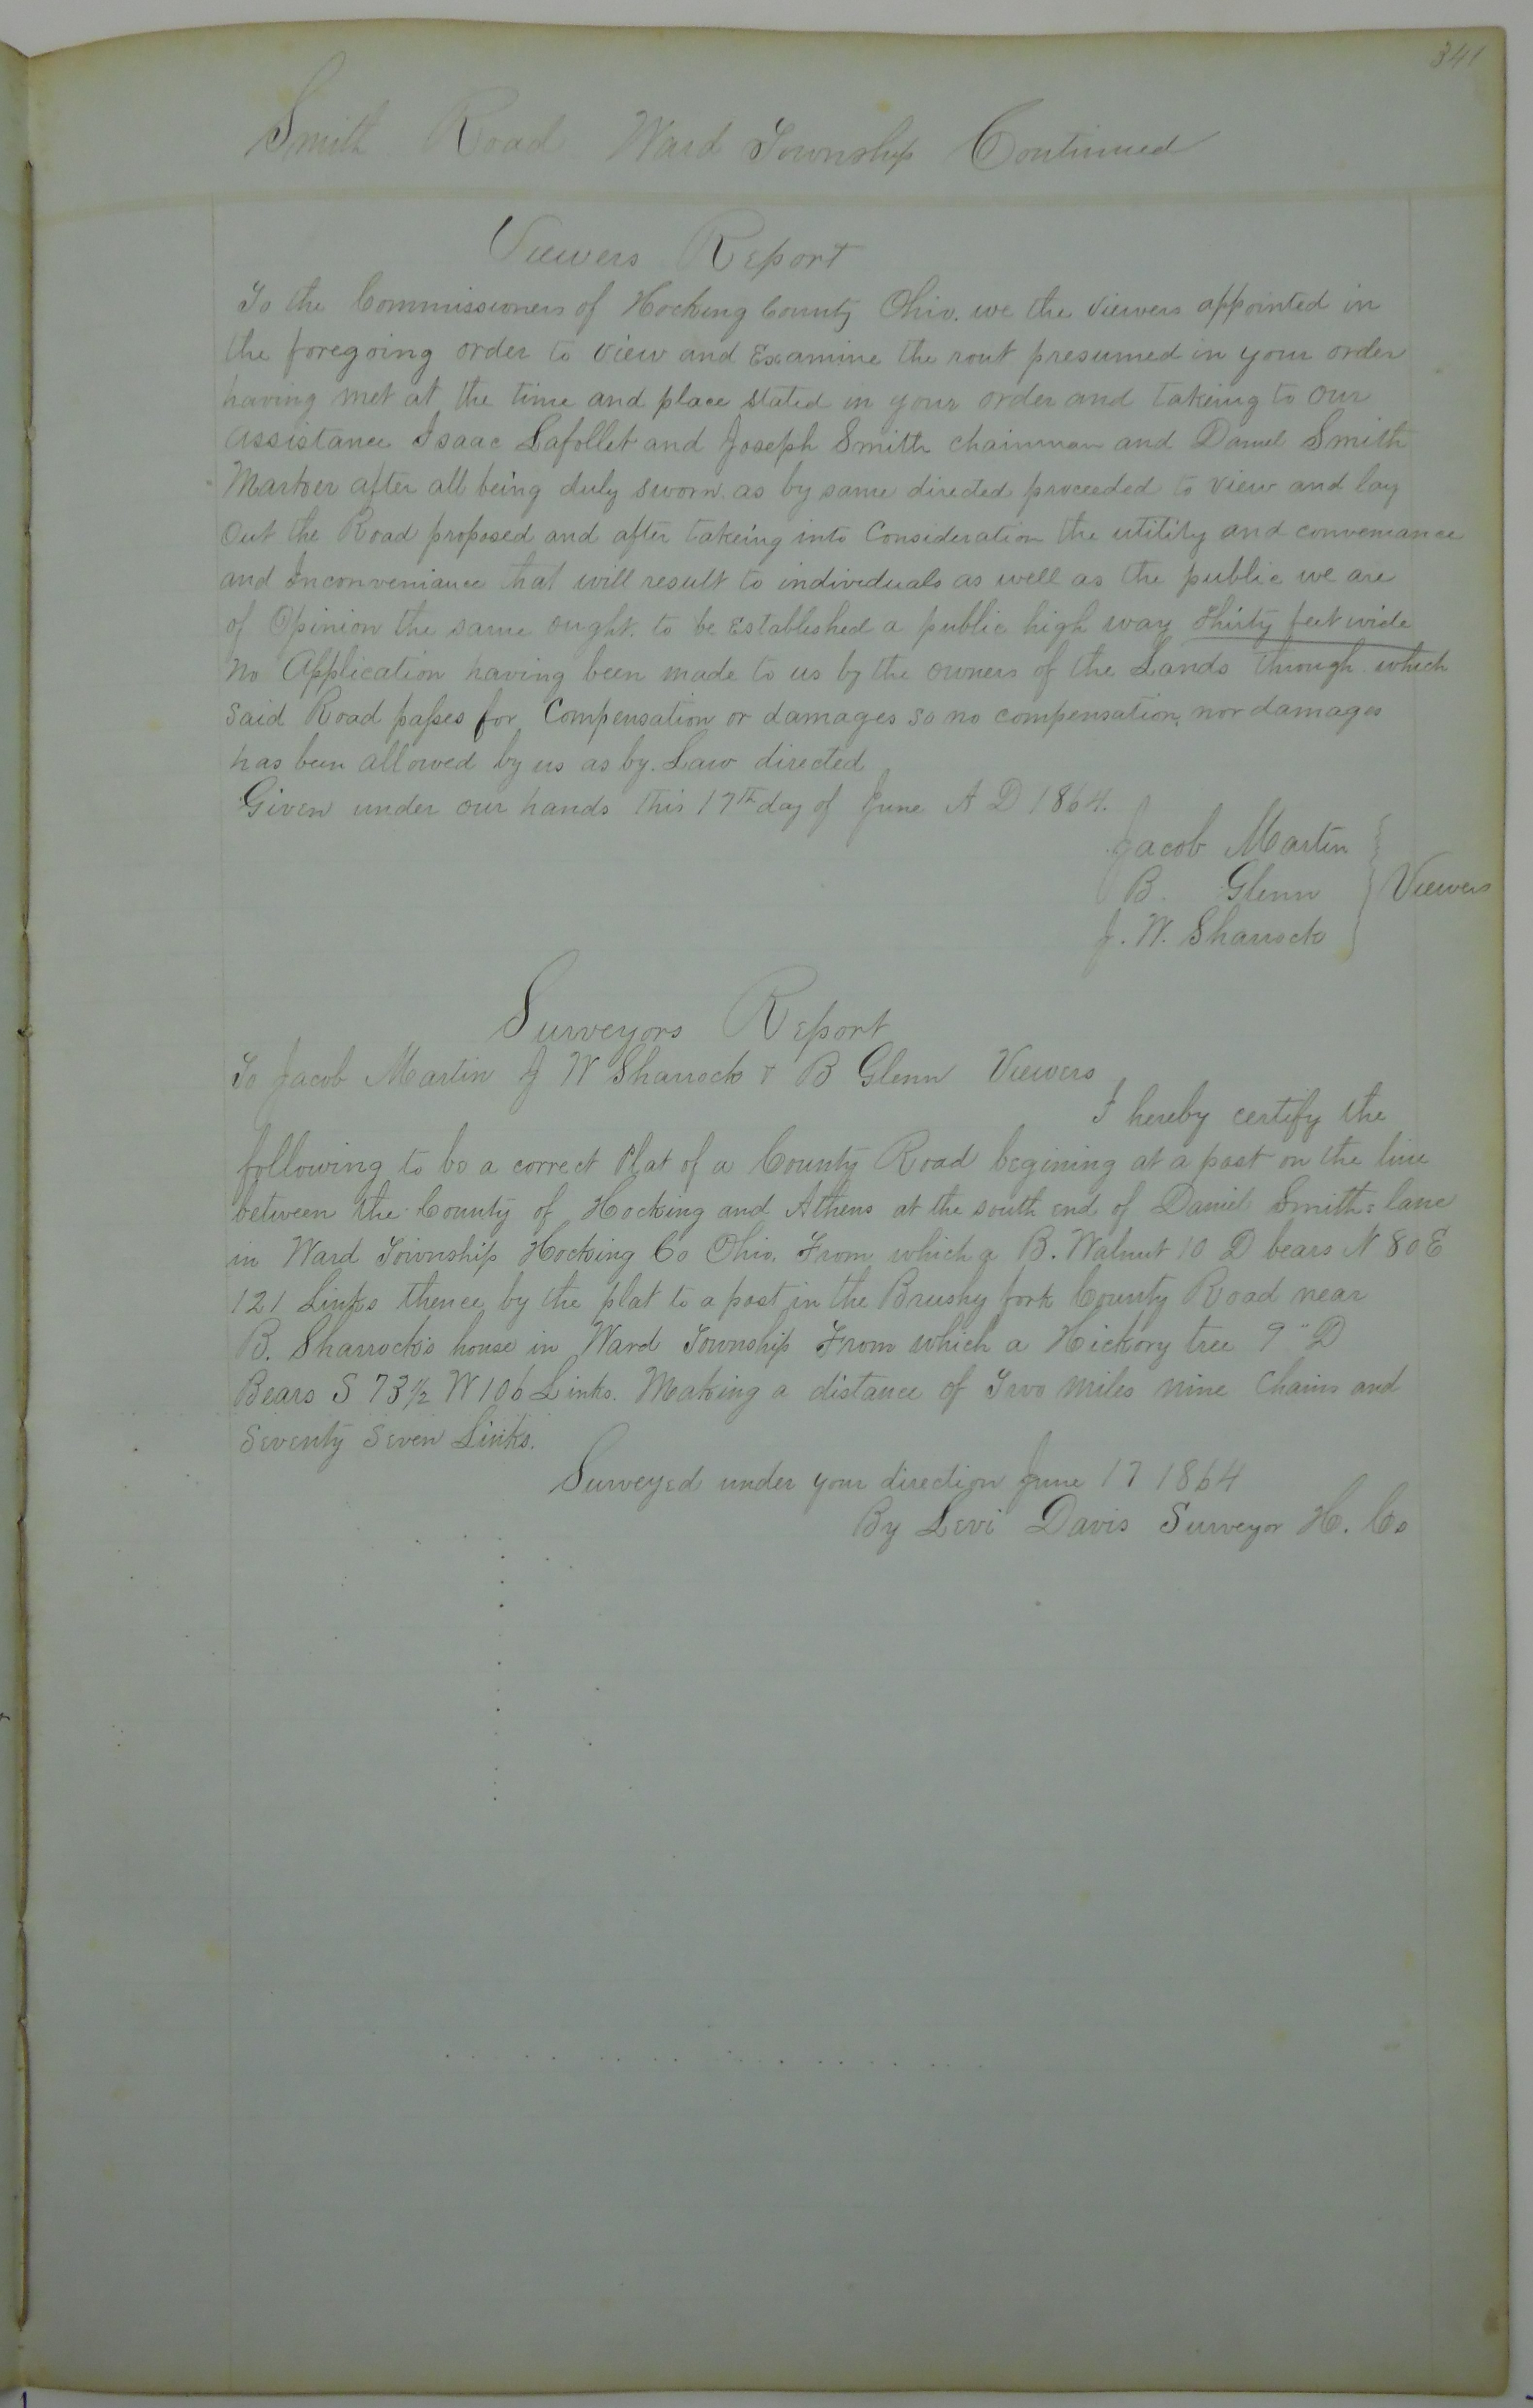 341
Smith Road Ward Township Continued
Viewers Report
To the Commissioners of Hocking County Ohio. we the viewers appointed in
the foregoing order to view and Examine the rout presumed in your order
having met at the time and place stated in your order and takeing to our
assistance Isaac Lafollet and Joseph Smith chainman and Daniel Smith
Marker after all being duly sworn as by same directed proceeded to view and lay
Out the Road proposed and after takeing into Consideration the utility and conveniance
and Inconveniance that will result to individuals as well as the public we are
of Opinion the same ought to be Established a public high way thirty feet wide
No Application having been made to us by the owners of the Lands through which
said Road passes for Compensation or damages so no compensation nor damages
has been allowed by us as by Law directed
Given under our hands this 17th day of June A D 1864.
Jacob Martin
B. Glenn } Viewers
J. W. Sharrock
Surveyors Report
To Jacob Martin J W Sharrock & B Glenn Viewers
I hereby certify the
following to be a correct Plat of a County Road begining at a post on the line
between the County of Hocking and Athens at the south end of Daniel Smiths lane
in Ward Township Hocking Co Ohio. From which a B. Walnut 10 D bears N 80 E
121 Links thence by the plat to a post in the Brushy fork County Road near
B. Sharrock's house in Ward Township From which a Hickory tree 9" D
Bears S 73 1/2 W 106 Links. Making a distance of Two miles nine Chains and
Seventy Seven Links.
Surveyed under your direction June 17 1864
By Levi Davis Surveyor H. Co